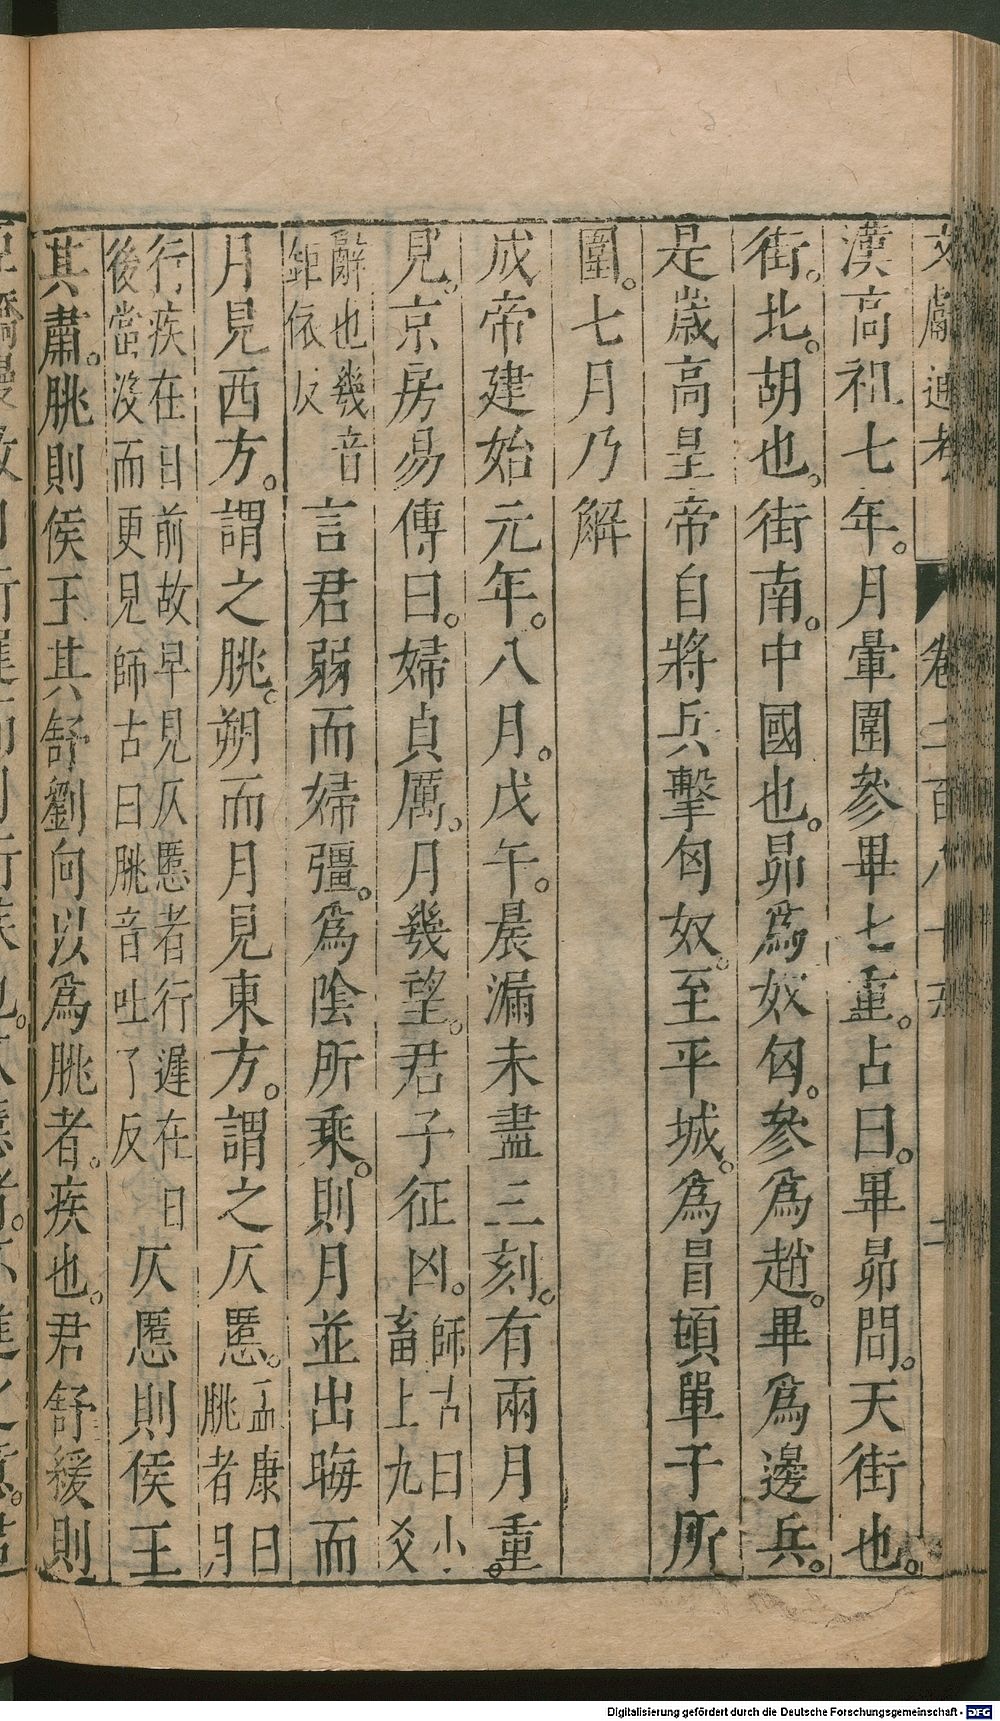 文獻通考 卷二百八十五 二
漢高祖七年。月暈圍參畢七重。占曰。畢昴間。天街也。
街。北。胡也。街南。中國也。昴爲奴匈。參爲趙。畢爲邊兵。
是歲高皇帝自將兵擊匈奴。至平城。爲冒頓單于所
圍。七月乃解
成帝建始元年。八月。戊午。晨漏未盡三刻。有兩月重
見。京房易傳曰。婦貞厲。月幾望。君子征凶。師古曰小畜上九爻
辭也幾音鉅依反言君弱而婦彊。爲陰所乘。則月並出晦而
月見西方。謂之朓。朔而月見東方。謂之仄慝。孟康曰朓者月
行疾在日前故早見仄慝者行遲在日後當沒而更見師古曰朓音吐了反仄慝則侯王
其肅。朓則侯王其舒劉向以爲朓者。疾也。君舒緩則
Digitalisierung gefördert durch die Deutsche Forschungsgemeinschaft - DFG